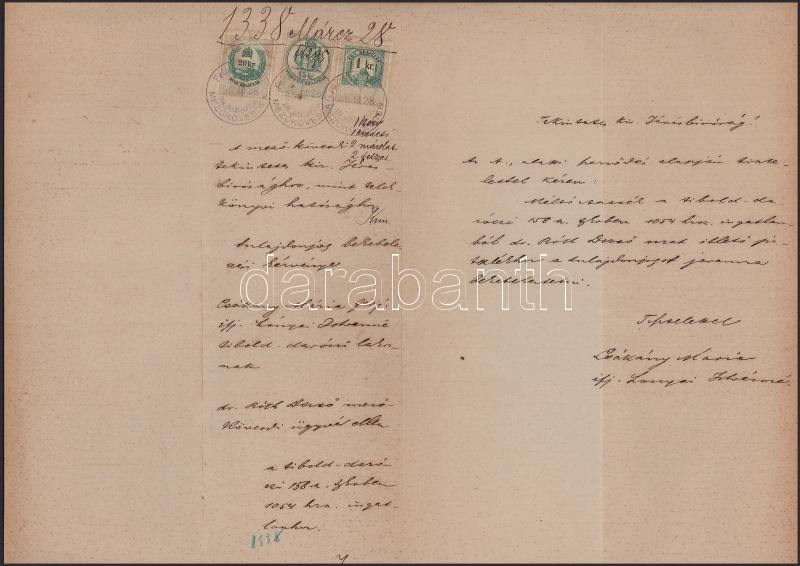 1338 Márcz 28
20 kr.
15 k.
1 kr.
MEZŐKÖVESDEN
1 köv
2 másolat
2 felzet
A mező-kövesdi
tekintetes kir. Járás-
bírósághoz, mint telek-
könyvi hatósághoz
tulajdonjog bekebele-
zési kérvénye
Csákány Mária férj.
ifj. Lónyai Istvánné
tibold-daróczi lakos-
nak
dr. Róth Dezső mező-
kövesdi ügyvéd ellen
a tibold-daró-
czi 158 a. tkvben
1054 hrsz. ingat-
lanhoz.
1338
Tekintetes kir. Járásbíróság!
Az A., alatti alapján
kérem:
Méltóztassék a tibold-da-
róczi 158 a. tkvben 1054 hrsz. ingatlan-
ból dr. Róth Dezső urat illető
a tulajdonjogot javamra
bekebelezni.
Tisztelettel
Csákány Maria
ifj. Lonyai Istvánné.
darabanth